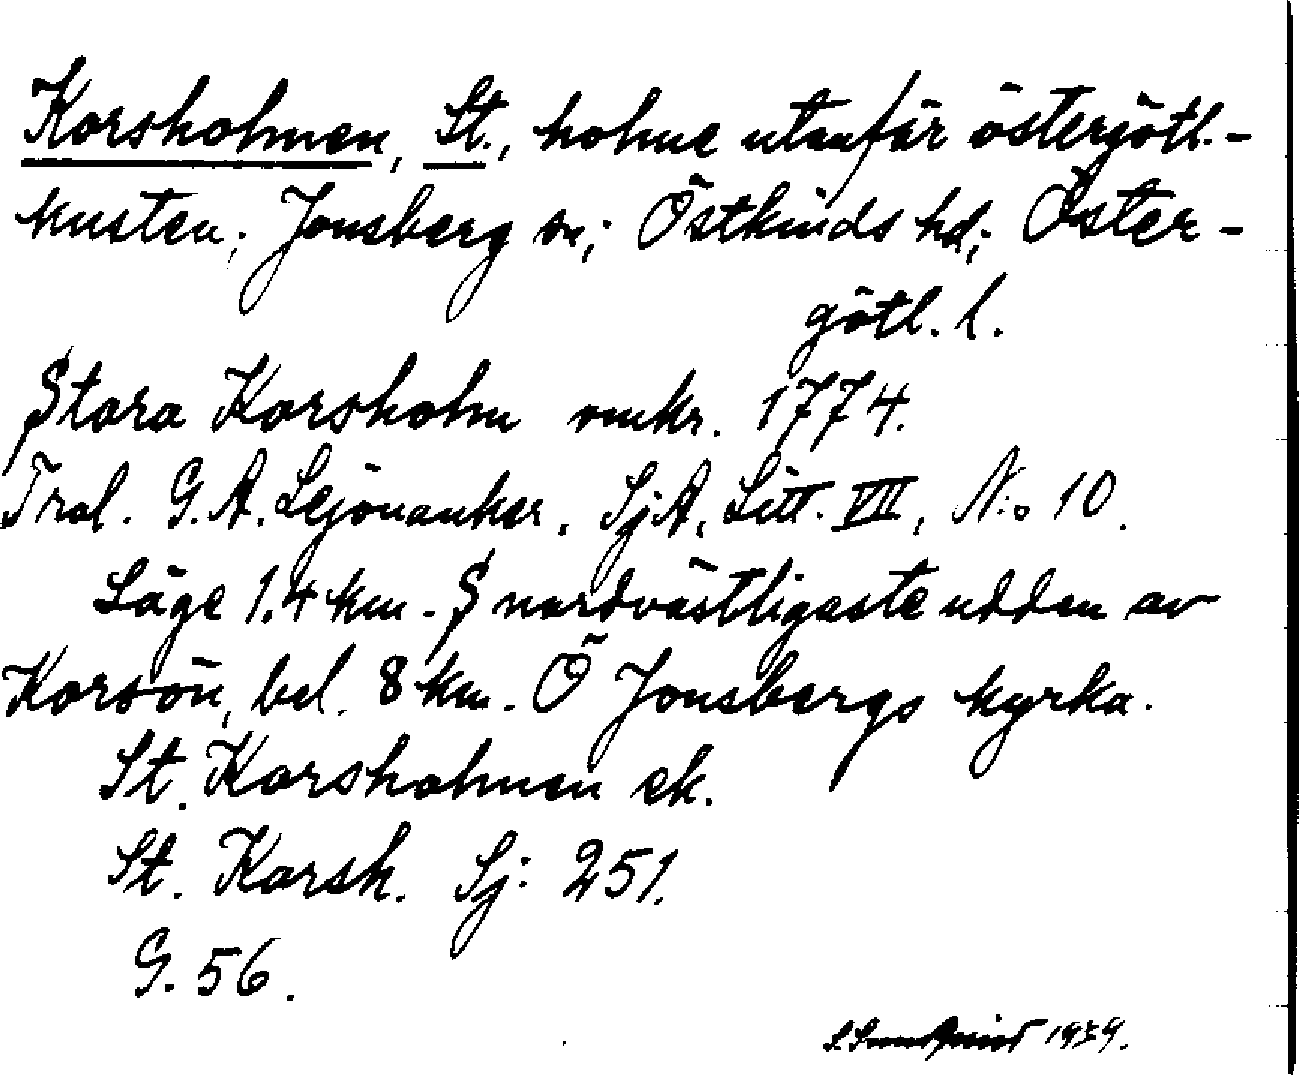 Korsholmen, St., holme utanför östergötl.-
kusten; Jonsberg sn; Östkinds hd; Öster-
götl. l.
Stora Korsholm omkr. 1774.
Tral. G. A. Lejonanker. SjA, Litt. VII, N:o 10.
Läge 1.4 km. S nordvästligaste udden av
Korsön, bel. 8 km. Ö Jonsbergs kyrka.
St. Korsholmen ek.
St. Korsh. Sj: 251.
G. 56.
S. Sundqvist 1939.